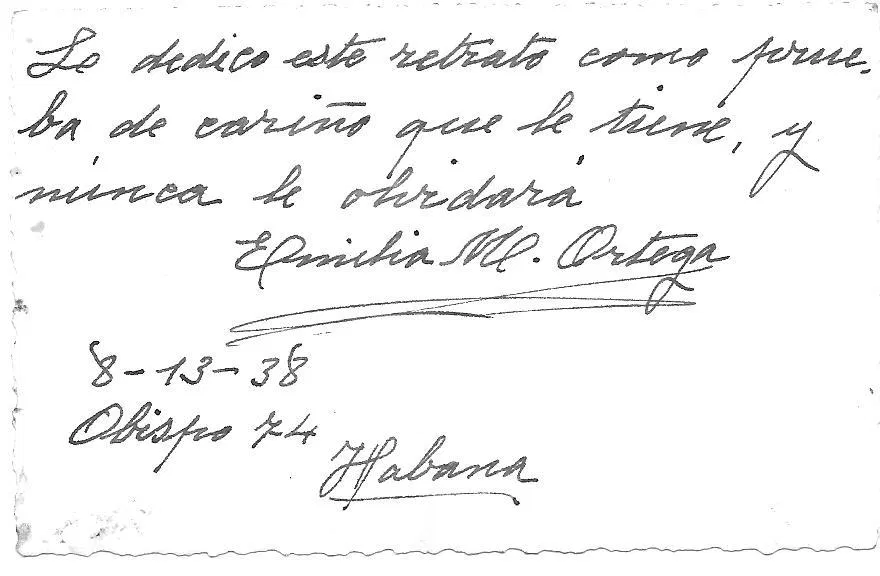 Le dedico este retrato como prue-
ba de cariño que le tiene, y
núnca le olvidará
Emilia M. Ortega
8-13-38
Obispo 74
Habana